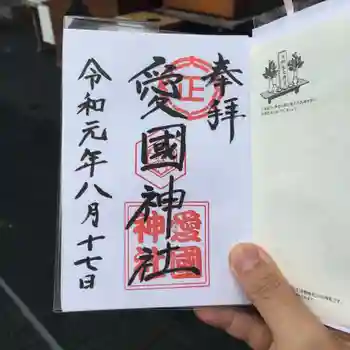 奉拝
愛國神社
令和元年八月十七日
正
愛国
神社